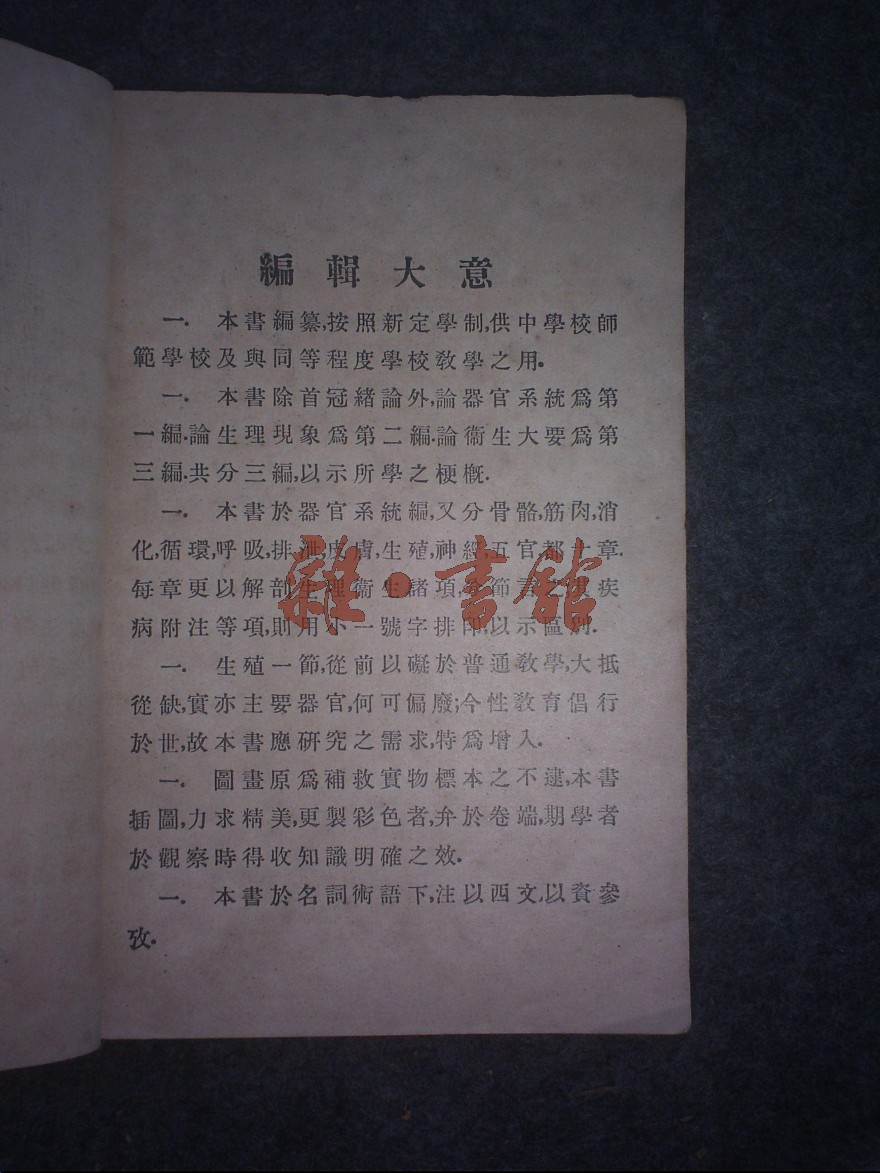 編輯大意
一. 本書編纂,按照新定學制,供中學校師
範學校及與同等程度學校敎學之用.
一. 本書除首冠緒論外,論器官系統爲第
一編.論生理現象爲第二編.論衞生大要爲第
三編.共分三編,以示所學之梗槪.
一. 本書於器官系統編,又分骨骼,筋肉,消
化,循環,呼吸,排泄,皮膚,生殖,神經,五官都十章.
每章更以解剖生理衞生諸項,分節言之.其疾
病附注等項,則用小一號字排印,以示區別.
一. 生殖一節,從前以礙於普通敎學,大抵
從缺,實亦主要器官,何可偏廢;今性敎育倡行
於世,故本書應硏究之需求,特爲增入.
一. 圖畫原爲補救實物標本之不逮,本書
插圖,力求精美,更製彩色者,弁於卷端,期學者
於觀察時得收知識明確之效.
一. 本書於名詞術語下,注以西文,以資參
攷.
雜·書館